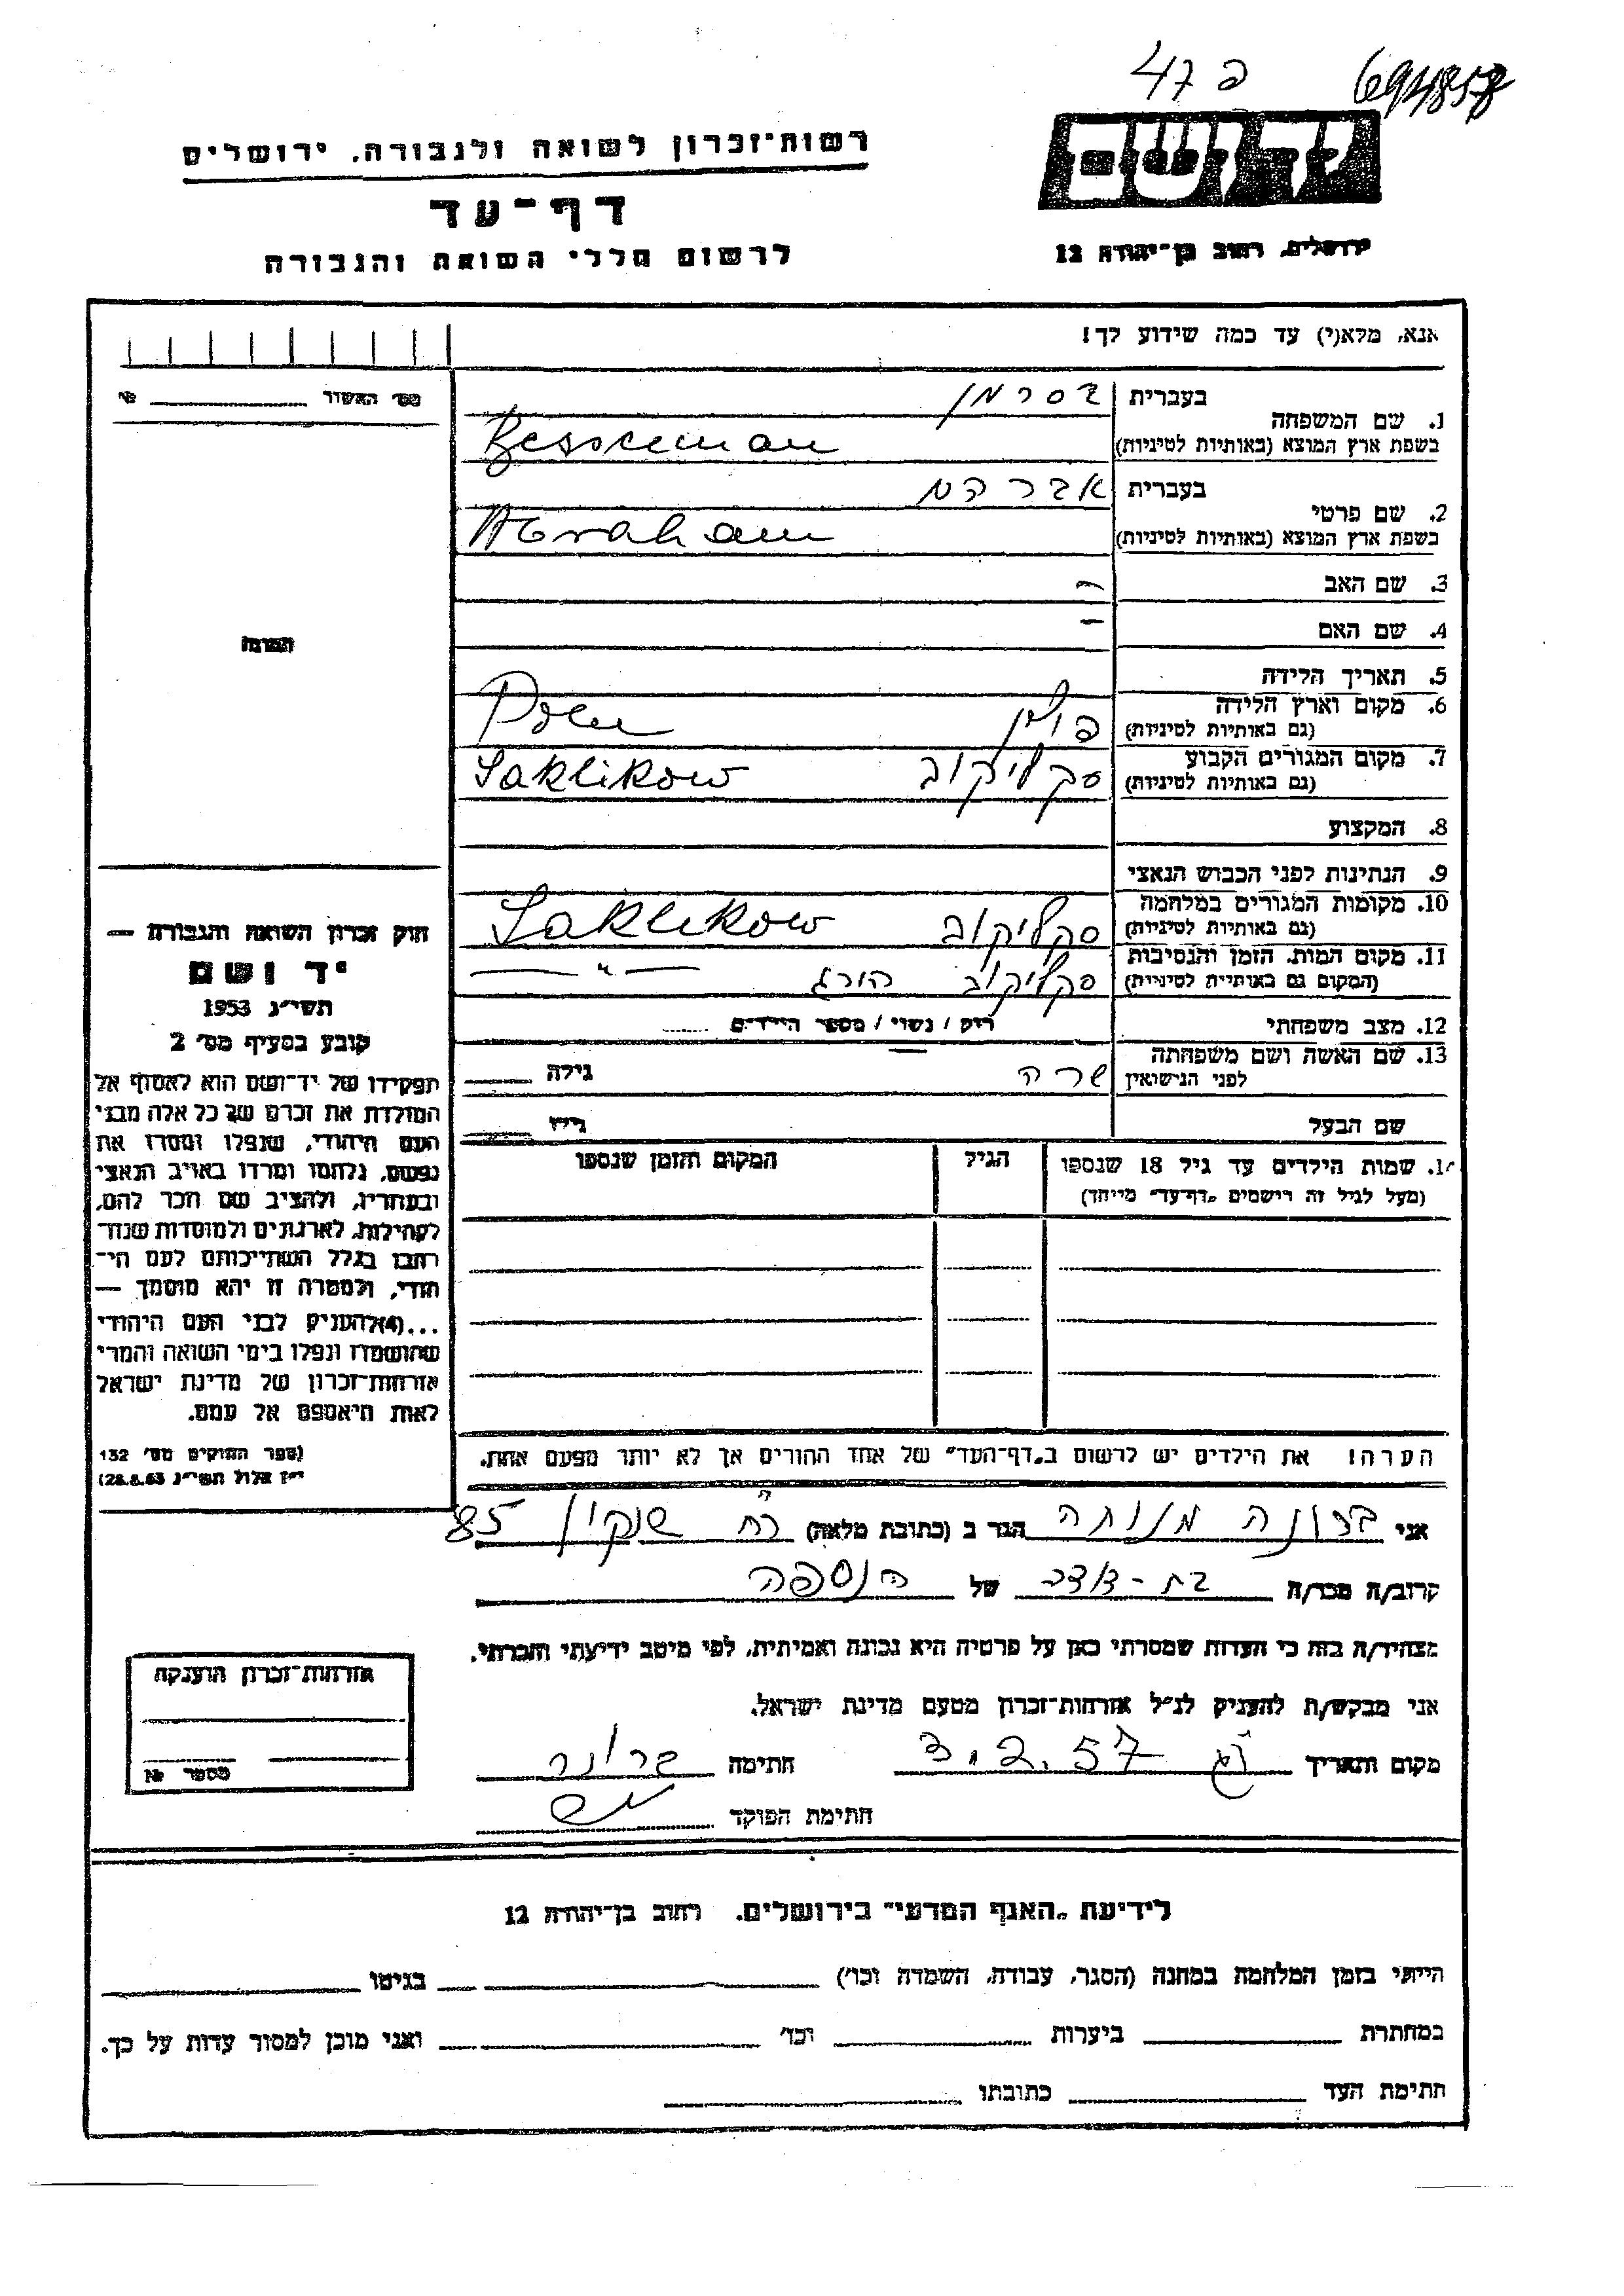 פ 47 694858
רשות־זכרון לשואה ולגבורה, ירושלים
יד ושם
דף־עד
ירושלים, רחוב בן־יהודה 12
לרשום חללי השואה והגבורה
אנא, מלא(י) עד כמה שידוע לך!
מס׳ האשור №
1. שם המשפחה
בעברית בסרמן
בשפת ארץ המוצא (באותיות לטיניות) Bessreman
2. שם פרטי
בעברית אברהם
בשפת ארץ המוצא (באותיות לטיניות) Abraham
3. שם האב –
4. שם האם –
התמונה
5. תאריך הלידה
6. מקום וארץ הלידה פולין Polen
(גם באותיות לטיניות)
7. מקום המגורים הקבוע סקליקוב Saklikow
(גם באותיות לטיניות)
8. המקצוע
9. הנתינות לפני הכבוש הנאצי
10. מקומות המגורים במלחמה סקליקוב Saklikow
(גם באותיות לטיניות)
11. מקום המות, הזמן והנסיבות סקליקוב הורג — " —
(המקום גם באותיות לטיניות)
12. מצב משפחתי רוק / נשוי / מספר הילדים
13. שם האשה ושם משפחתה שרה גילה
לפני הנישואין
שם הבעל גילו
14. שמות הילדים עד גיל 18 שנספו הגיל המקום והזמן שנספו
(מעל לגיל זה רישמים „דף־עד” מייחד)
חוק זכרון השואה והגבורה —
יד ושם
תשי״ג 1953
קובע בסעיף מס׳ 2
תפקידו של יד־ושם הוא לאסוף אל
המולדת את זכרם של כל אלה מבני
העם היהודי, שנפלו ומסרו את
נפשם, נלחמו ומרדו באויב הנאצי
ובעוזריו, ולהציב שם וזכר להם,
לקהילות, לארגונים ולמוסדות שנח־
רבו בגלל השתייכותם לעם הי־
הודי, ולמטרה זו יהא מוסמך —
...(4)להעניק לבני העם היהודי
שהושמדו ונפלו בימי השואה והמרי
אזרחות־זכרון של מדינת ישראל
לאות היאספם אל עמם.
(ספר החוקים מס׳ 132
י״ז אלול תשי״ג 28.8.53)
הערה! את הילדים יש לרשום ב„דף־העד” של אחד ההורים אך לא יותר מפעם אחת.
אני מנוחה הגר ב (כתובת מלאה) רח שנקין 85
קרוב/ה מכר/ה בת-דודה של הנספה
מצהיר/ה בזה כי העדות שמסרתי כאן על פרטיה היא נכונה ואמיתית, לפי מיטב ידיעתי והכרתי.
אני מבקש/ת להעניק לנ״ל אזרחות־זכרון מטעם מדינת ישראל.
מקום ותאריך 3.2.57 חתימה
חתימת הפוקד
אזרחות־זכרון הוענקה
מספר №
לידיעת „האגף המדעי” בירושלים. רחוב בן־יהודה 12
הייתי בזמן המלחמה במחנה (הסגר, עבודה, השמדה וכו׳) בגיטו
במחתרת ביערות וכו׳ ואני מוכן למסור עדות על כך.
חתימת העד כתובתו